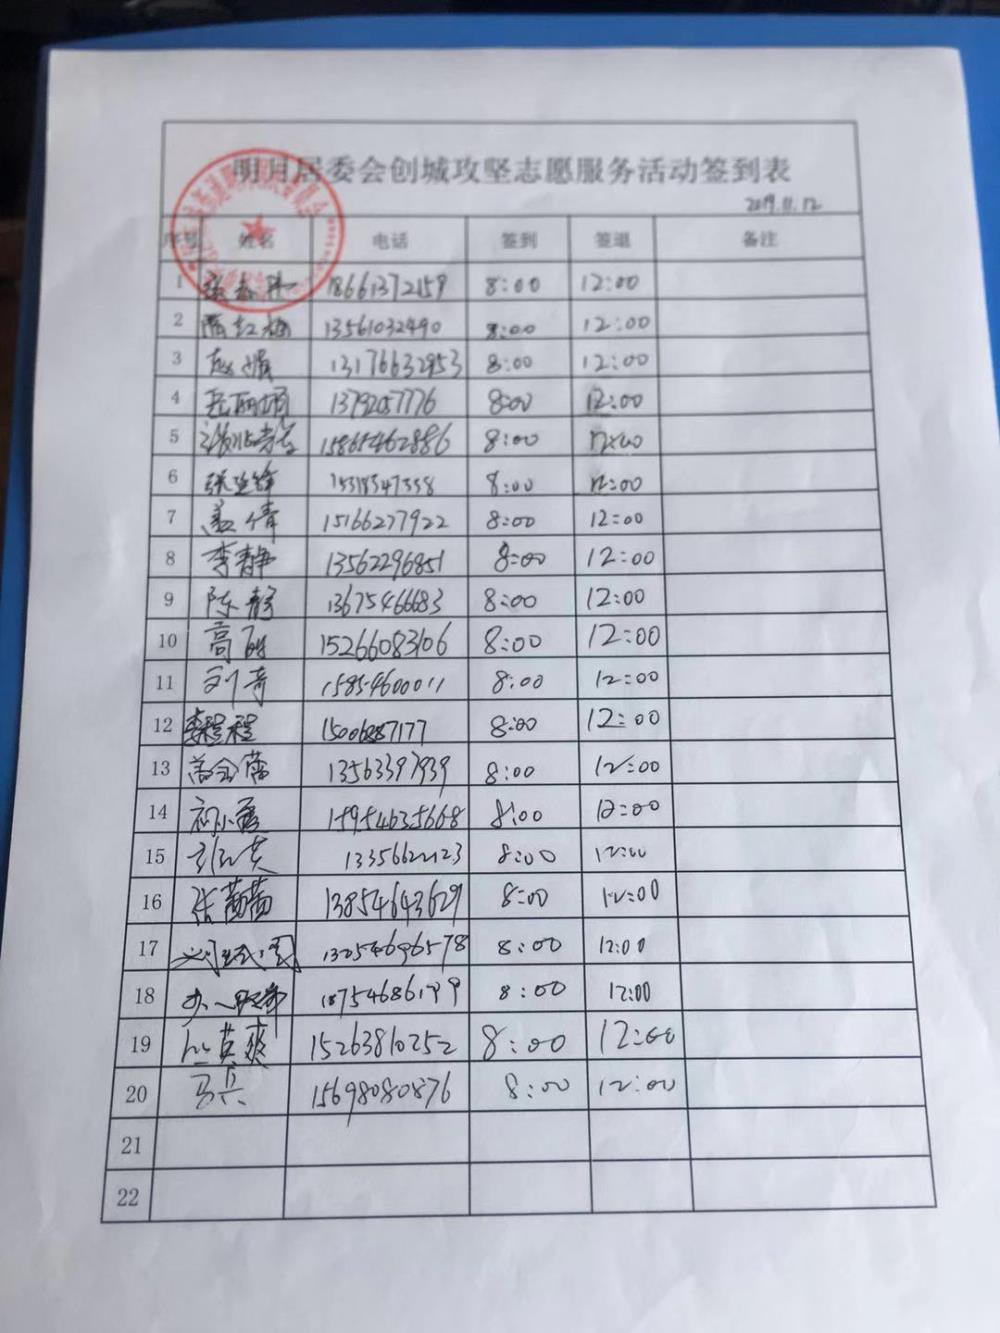 明月居委会创城攻坚志愿服务活动签到表
2019.11.12
序号 姓名 电话 签到 签退 备注
1 18661372159 8:00 12:00
2 陈红梅 13561032490 8:00 12:00
3 13176632953 8:00 12:00
4 13792057776 8:00 12:00
5 15865462886 8:00 12:00
6 8:00 12:00
7 孟倩 15166277922 8:00 12:00
8 李静 13562296851 8:00 12:00
9 陈静 13675466683 8:00 12:00
10 高 15266083106 8:00 12:00
11 刘奇 15854600011 8:00 12:00
12 李程程 8:00 12:00
13 13563397939 8:00 12:00
14 15954635668 8:00 12:00
15 8:00 12:00
16 张茜茜 13854643629 8:00 12:00
17 8:00 12:00
18 18754686199 8:00 12:00
19 英爽 15263810252 8:00 12:00
20 马兵 15698080876 8:00 12:00
21
22